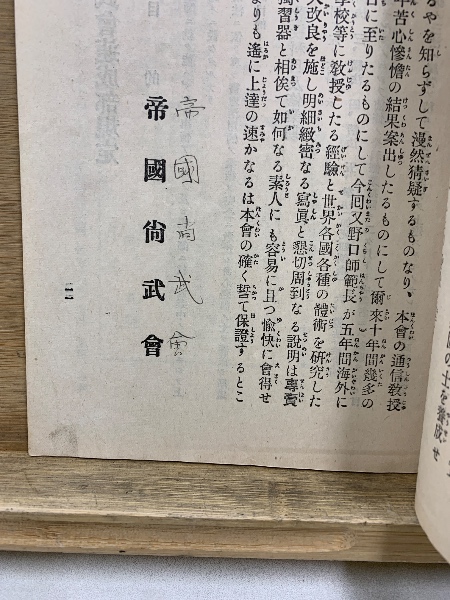 るやを知らずして漫然猜疑するものなり、本會の通信敎授
年苦心慘憺の結果案出したるものにして爾來十年間幾多の
日に至りたるものにして今回又野口師範長が五年間海外に
學校等に敎授したる經驗と世界各國各種の體術を硏究した
大改良を施し明細緻密なる寫眞と懇切周到なる說明は專賣
獨習器と相俟て如何なる素人にも容易に且つ愉快に會得せ
よりも遙に上達の速かなるは本會の確く誓て保證するとこ
帝國尙武會
帝國尙武會
目 的
國の士を養成せ